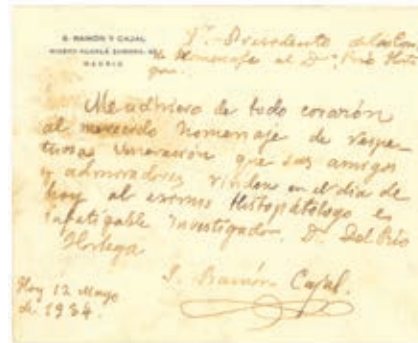 S. RAMÓN Y CAJAL
MADRID
Sr. Presidente de la Com
de Homenaje al Dr. Río Hor
Me adhiero de todo corazón
al merecido homenaje de respe-
tuosa veneración que sus amigos
y admiradores rinden en el día de
hoy al eximio Histopatólogo e
infatigable investigador. D. Del Río
Hortega
S. Ramón Cajal.
Hoy 12 Mayo
de 1934.